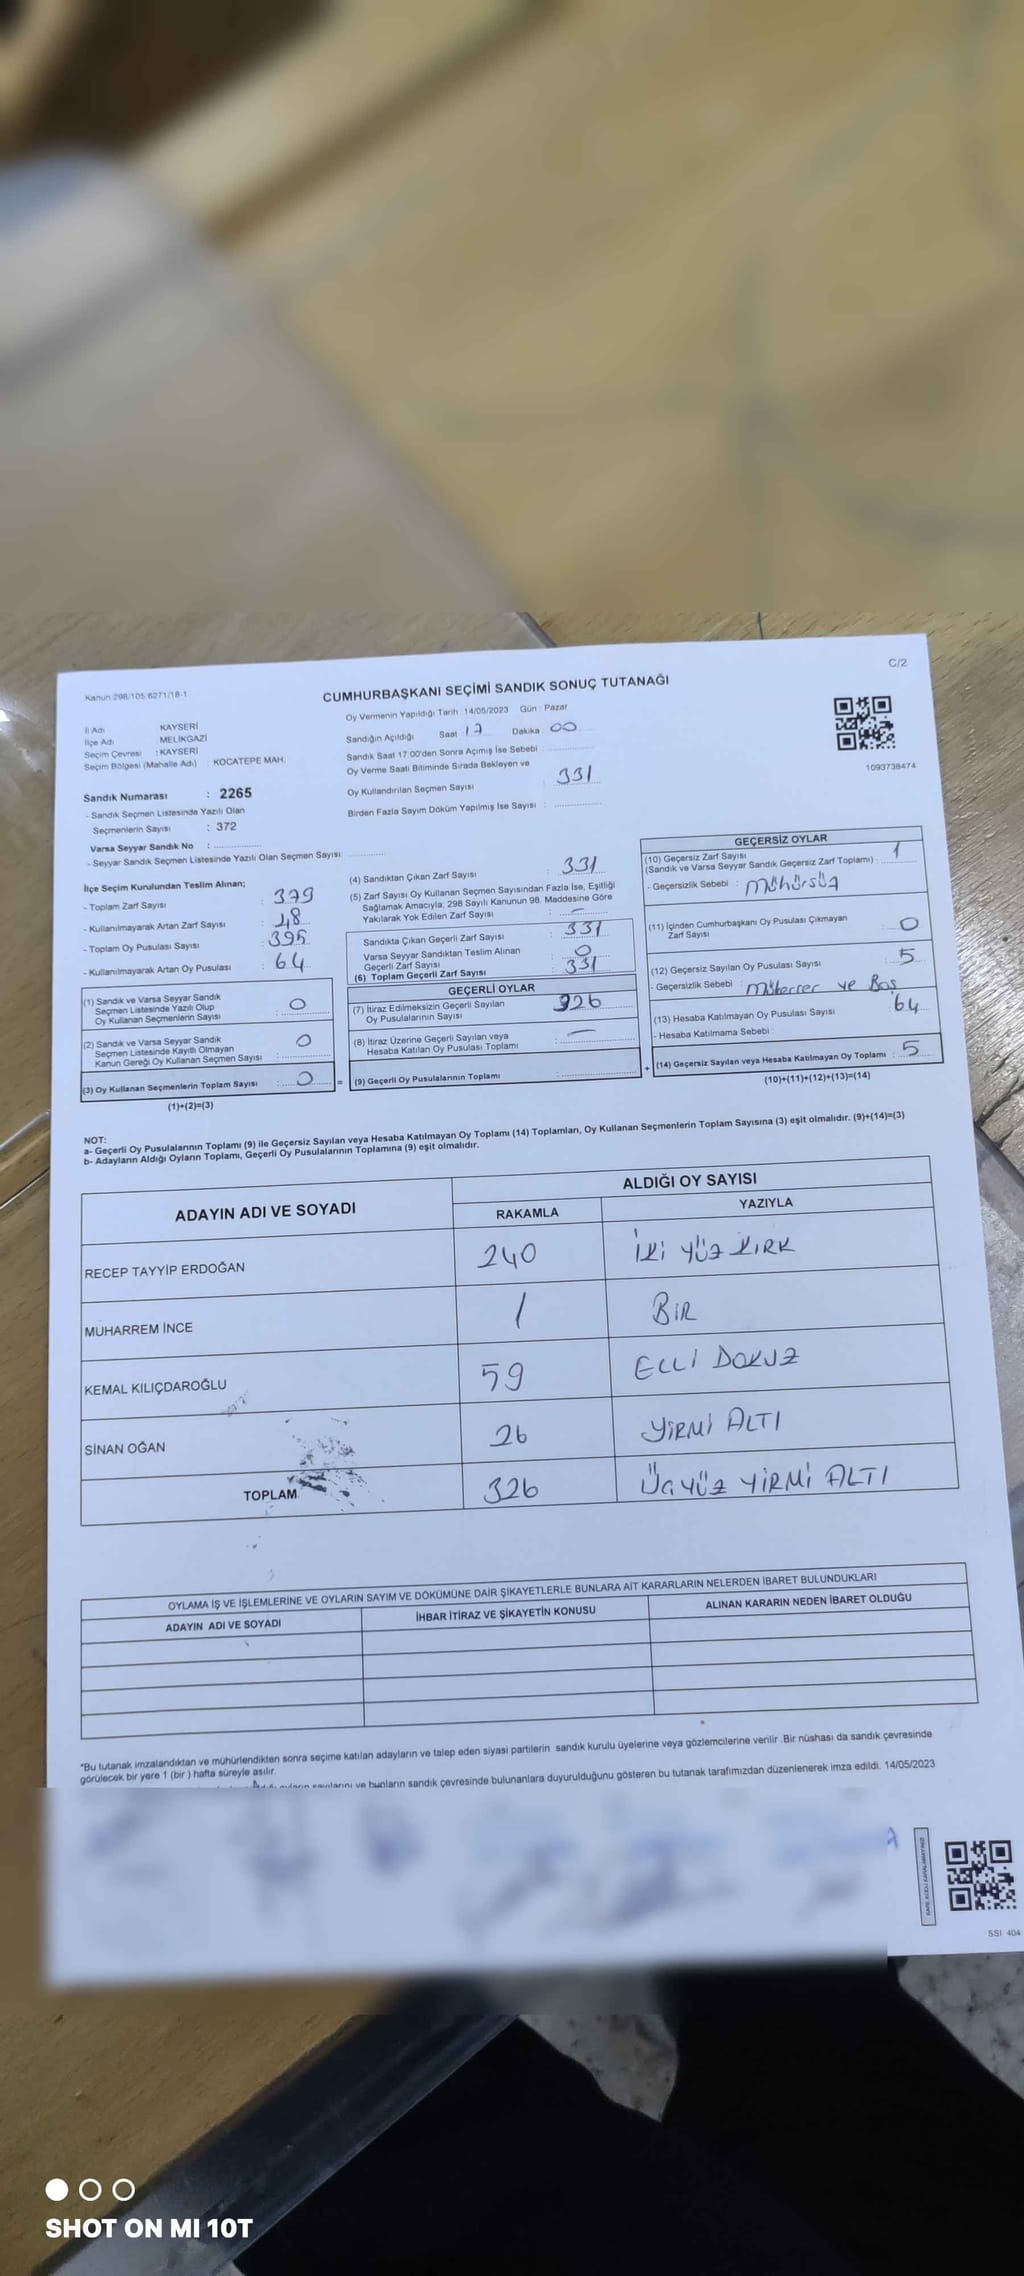 C/2
Kanun:298/105,6271/18-1
CUMHURBAŞKANI SEÇİMİ SANDIK SONUÇ TUTANAĞI
İl Adı KAYSERİ
İlçe Adı MELİKGAZİ
Seçim Çevresi : KAYSERİ
Seçim Bölgesi (Mahalle Adı) : KOCATEPE MAH.
Oy Vermenin Yapıldığı Tarih 14/05/2023 Gün : Pazar
Sandığın Açıldığı Saat 17 Dakika 00
Sandık Saat 17:00'den Sonra Açımış İse Sebebi :
Oy Verme Saati Bitiminde Sırada Bekleyen ve
Oy Kullandırılan Seçmen Sayısı : 331
Birden Fazla Sayım Döküm Yapılmış İse Sayısı :
1093738474
Sandık Numarası : 2265
- Sandık Seçmen Listesinde Yazılı Olan
Seçmenlerin Sayısı : 372
Varsa Seyyar Sandık No :
- Seyyar Sandık Seçmen Listesinde Yazılı Olan Seçmen Sayısı:
İlçe Seçim Kurulundan Teslim Alınan;
- Toplam Zarf Sayısı : 379
- Kullanılmayarak Artan Zarf Sayısı : 48
- Toplam Oy Pusulası Sayısı : 395
- Kullanılmayarak Artan Oy Pusulası : 64
(1) Sandık ve Varsa Seyyar Sandık
Seçmen Listesinde Yazılı Olup
Oy Kullanan Seçmenlerin Sayısı : 0
(2) Sandık ve Varsa Seyyar Sandık
Seçmen Listesinde Kayıtlı Olmayan
Kanun Gereği Oy Kullanan Seçmen Sayısı : 0
(3) Oy Kullanan Seçmenlerin Toplam Sayısı : 0
(1)+(2)=(3)
(4) Sandıktan Çıkan Zarf Sayısı : 331
(5) Zarf Sayısı Oy Kullanan Seçmen Sayısından Fazla İse, Eşitliği
Sağlamak Amacıyla; 298 Sayılı Kanunun 98. Maddesine Göre
Yakılarak Yok Edilen Zarf Sayısı : –
Sandıkta Çıkan Geçerli Zarf Sayısı : 331
Varsa Seyyar Sandıktan Teslim Alınan
Geçerli Zarf Sayısı : 0
(6) Toplam Geçerli Zarf Sayısı : 331
GEÇERLİ OYLAR
(7) İtiraz Edilmeksizin Geçerli Sayılan
Oy Pusulalarının Sayısı : 326
(8) İtiraz Üzerine Geçerli Sayılan veya
Hesaba Katılan Oy Pusulası Toplamı : –
= (9) Geçerli Oy Pusulalarının Toplamı :
GEÇERSİZ OYLAR
(10) Geçersiz Zarf Sayısı
(Sandık ve Varsa Seyyar Sandık Geçersiz Zarf Toplamı) : 1
- Geçersizlik Sebebi : Mühürsüz
(11) İçinden Cumhurbaşkanı Oy Pusulası Çıkmayan
Zarf Sayısı : 0
(12) Geçersiz Sayılan Oy Pusulası Sayısı : 5
- Geçersizlik Sebebi : Mükerrer ve Boş
(13) Hesaba Katılmayan Oy Pusulası Sayısı : 64
- Hesaba Katılmama Sebebi :
+ (14) Geçersiz Sayılan veya Hesaba Katılmayan Oy Toplamı : 5
(10)+(11)+(12)+(13)=(14)
NOT:
a- Geçerli Oy Pusulalarının Toplamı (9) ile Geçersiz Sayılan veya Hesaba Katılmayan Oy Toplamı (14) Toplamları, Oy Kullanan Seçmenlerin Toplam Sayısına (3) eşit olmalıdır. (9)+(14)=(3)
b- Adayların Aldığı Oyların Toplamı, Geçerli Oy Pusulalarının Toplamına (9) eşit olmalıdır.
ADAYIN ADI VE SOYADI
ALDIĞI OY SAYISI
RAKAMLA YAZIYLA
RECEP TAYYİP ERDOĞAN 240 İKİ YÜZ KIRK
MUHARREM İNCE 1 BİR
KEMAL KILIÇDAROĞLU 59 ELLİ DOKUZ
SİNAN OĞAN 26 YİRMİ ALTI
TOPLAM 326 ÜÇYÜZ YİRMİ ALTI
OYLAMA İŞ VE İŞLEMLERİNE VE OYLARIN SAYIM VE DÖKÜMÜNE DAİR ŞİKAYETLERLE BUNLARA AİT KARARLARIN NELERDEN İBARET BULUNDUKLARI
ADAYIN ADI VE SOYADI İHBAR İTİRAZ VE ŞİKAYETİN KONUSU ALINAN KARARIN NEDEN İBARET OLDUĞU
*Bu tutanak imzalandıktan ve mühürlendikten sonra seçime katılan adayların ve talep eden siyasi partilerin sandık kurulu üyelerine veya gözlemcilerine verilir .Bir nüshası da sandık çevresinde
görülecek bir yere 1 (bir ) hafta süreyle asılır.
ve bunların sandık çevresinde bulunanlara duyurulduğunu gösteren bu tutanak tarafımızdan düzenlenerek imza edildi. 14/05/2023
SSI 404
SHOT ON MI 10T